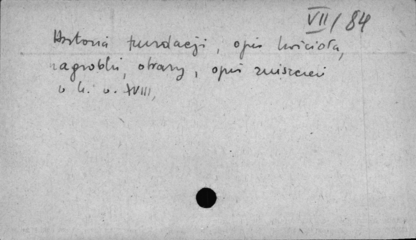 VII/84
Historia fundacji, opis kościoła,
nagrobki, obrazy, opis zniszczeń
w k. w. XVIII,